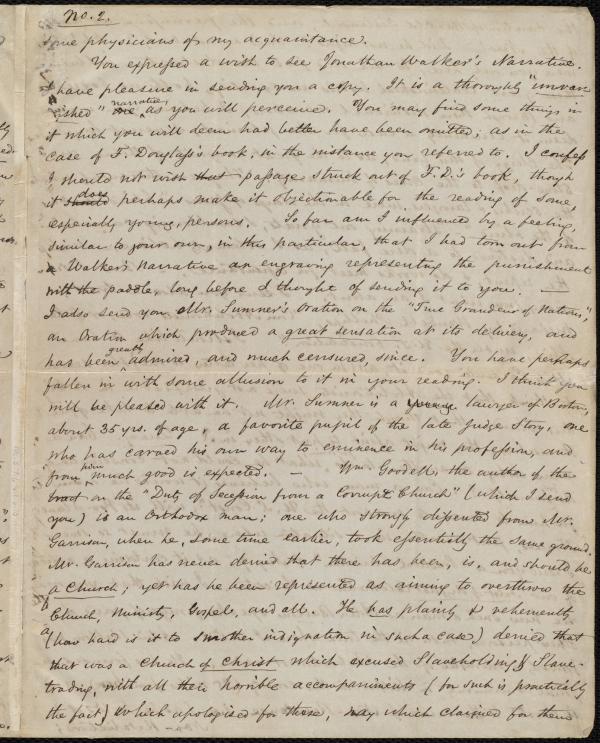 No. 2.
some physicians of my acquaintance.
You expressed a wish to see Jonathan Walker's Narrative.
I have pleasure in sending you a copy. It is a thoroughly "unvar-
nished" narrative, as you will perceive. You may find some things in
it which you will deem had better have been omitted; as in the
case of F. Douglass's book, in the instance you referred to. I confess
I should not wish that passage struck out of F. D.'s book, though
it should does perhaps make it objectionable for the reading of some,
especially young, persons. So far am I influenced by a feeling,
similar to your own, in this particular, that I had torn out from
Walker's Narrative an engraving representing the punishment
with the paddle, long before I thought of sending it to you. —
I also send you Mr. Sumner's Oration on the "True Grandeur of Nations",
an Oration which produced a great sensation at its delivery, and
has been greatly admired, and much censured, since. You have perhaps
fallen in with some allusion to it in your reading. I think you
will be pleased with it. Mr. Sumner is a young lawyer of Boston,
about 35 yrs. of age, a favorite pupil of the late Judge Story, one
who has carved his own way to eminence in his profession, and
from him much good is expected. — Wm. Goodell, the author of the
tract on the "Duty of Secession from a Corrupt Church" (which I send
you) is an Orthodox man; one who strongly dissented from Mr.
Garrison, when he, some time earlier, took essentially the same ground.
Mr. Garrison has never denied that there has been, is, and should be
a Church; yet has he been represented as aiming to overthrow the
Church, Ministry, Gospel, and all. He has plainly & vehemently
(how hard is it to smother indignation in such a case) denied that
that was a Church of Christ which excused Slaveholding & Slave-
trading, with all their horrible accompaniments (for such is practically
the fact) & which apologised for these, nay which claimed for them